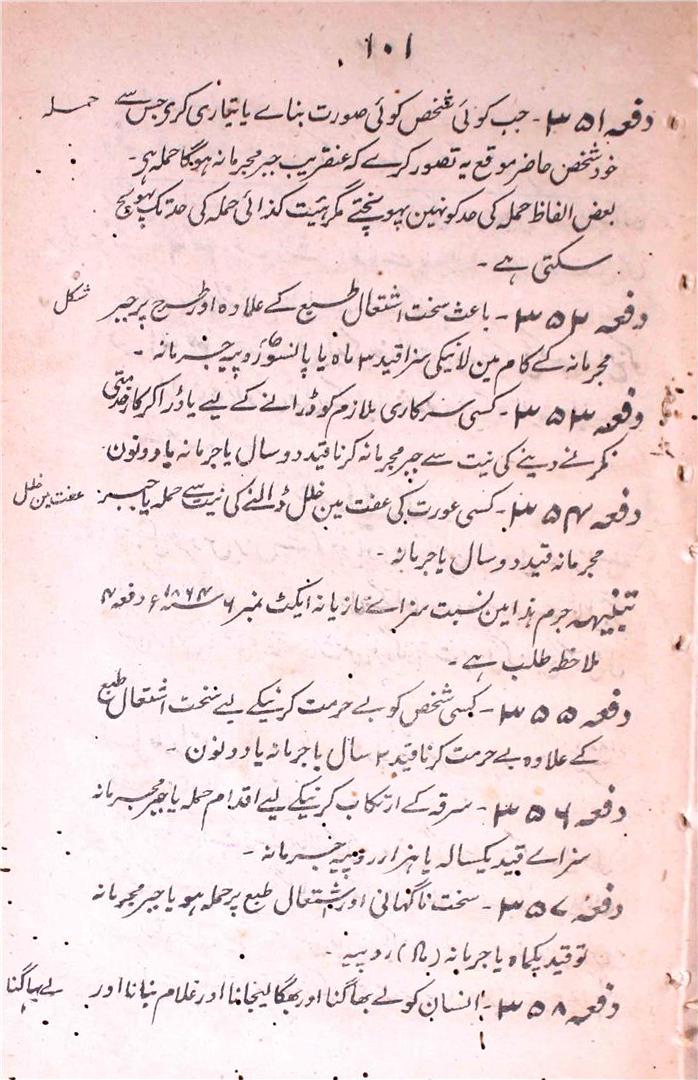 ۱۰۱
دفعہ ۳۵۱۔ جب کوئی شخص کوئی صورت بناے یا تیاری کری جس سے حملہ
خود شخص حاضر موقع یہ تصور کرے کہ عنقریب جبر مجرمانہ ہوگا حملہ ہی۔
بعض الفاظ حملہ کی حد کو نہین پہونچتے مگر ہئیت کذائی حملہ کی حد تک پہونچ
سکتی ہے۔
دفعہ ۳۵۲۔ باعث سخت اشتعال طبع کے علاوہ اور طرح پر جبر شکل
مجرمانہ کے کام مین لانیکی سزا قید ۳ ماہ یا پانسو روپیہ جرمانہ۔
دفعہ ۳۵۳۔ کسی سرکاری ملازم کو ڈرانے کے لیے یا ڈرا کر کار خدمتی
نکرنے دینے کی نیت سے جبر مجرمانہ کرنا قید دو سال یا جرمانہ یا دونون
دفعہ ۳۵۴۔ کسی عورت کی عفت مین خلل ڈالنے کی نیت سے حملہ یا جبر عفت مین خلل
مجرمانہ قید دو سال یا جرمانہ۔
تنبیہہ جرم ہذا مین نسبت سزاے تازیانہ ایکٹ نمبر ۶ سنہ ۱۸۶۴ء دفعہ ۴
ملاحظہ طلب ہے۔
دفعہ ۳۵۵۔ کسی شخص کو بے حرمت کرنیکے لیے سخت اشتعال طبع
کے علاوہ بے حرمت کرنا قید ۲ سال یا جرمانہ یا دونون۔
دفعہ ۳۵۶۔ سرقہ کے ارتکاب کرنیکے لیے اقدام حملہ یا جبر مجرمانہ
سزاے قید یکسالہ یا ہزار روپیہ جرمانہ۔
دفعہ ۳۵۷۔ سخت ناگہانی اور اشتعال طبع پر حملہ ہو یا جبر مجرمانہ
تو قید یکماہ یا جرمانہ روپیہ۔
دفعہ ۳۵۸۔ انسان کو لے بھاگنا اور بھگا لیجانا اور غلام بنانا اور لے بھاگنا